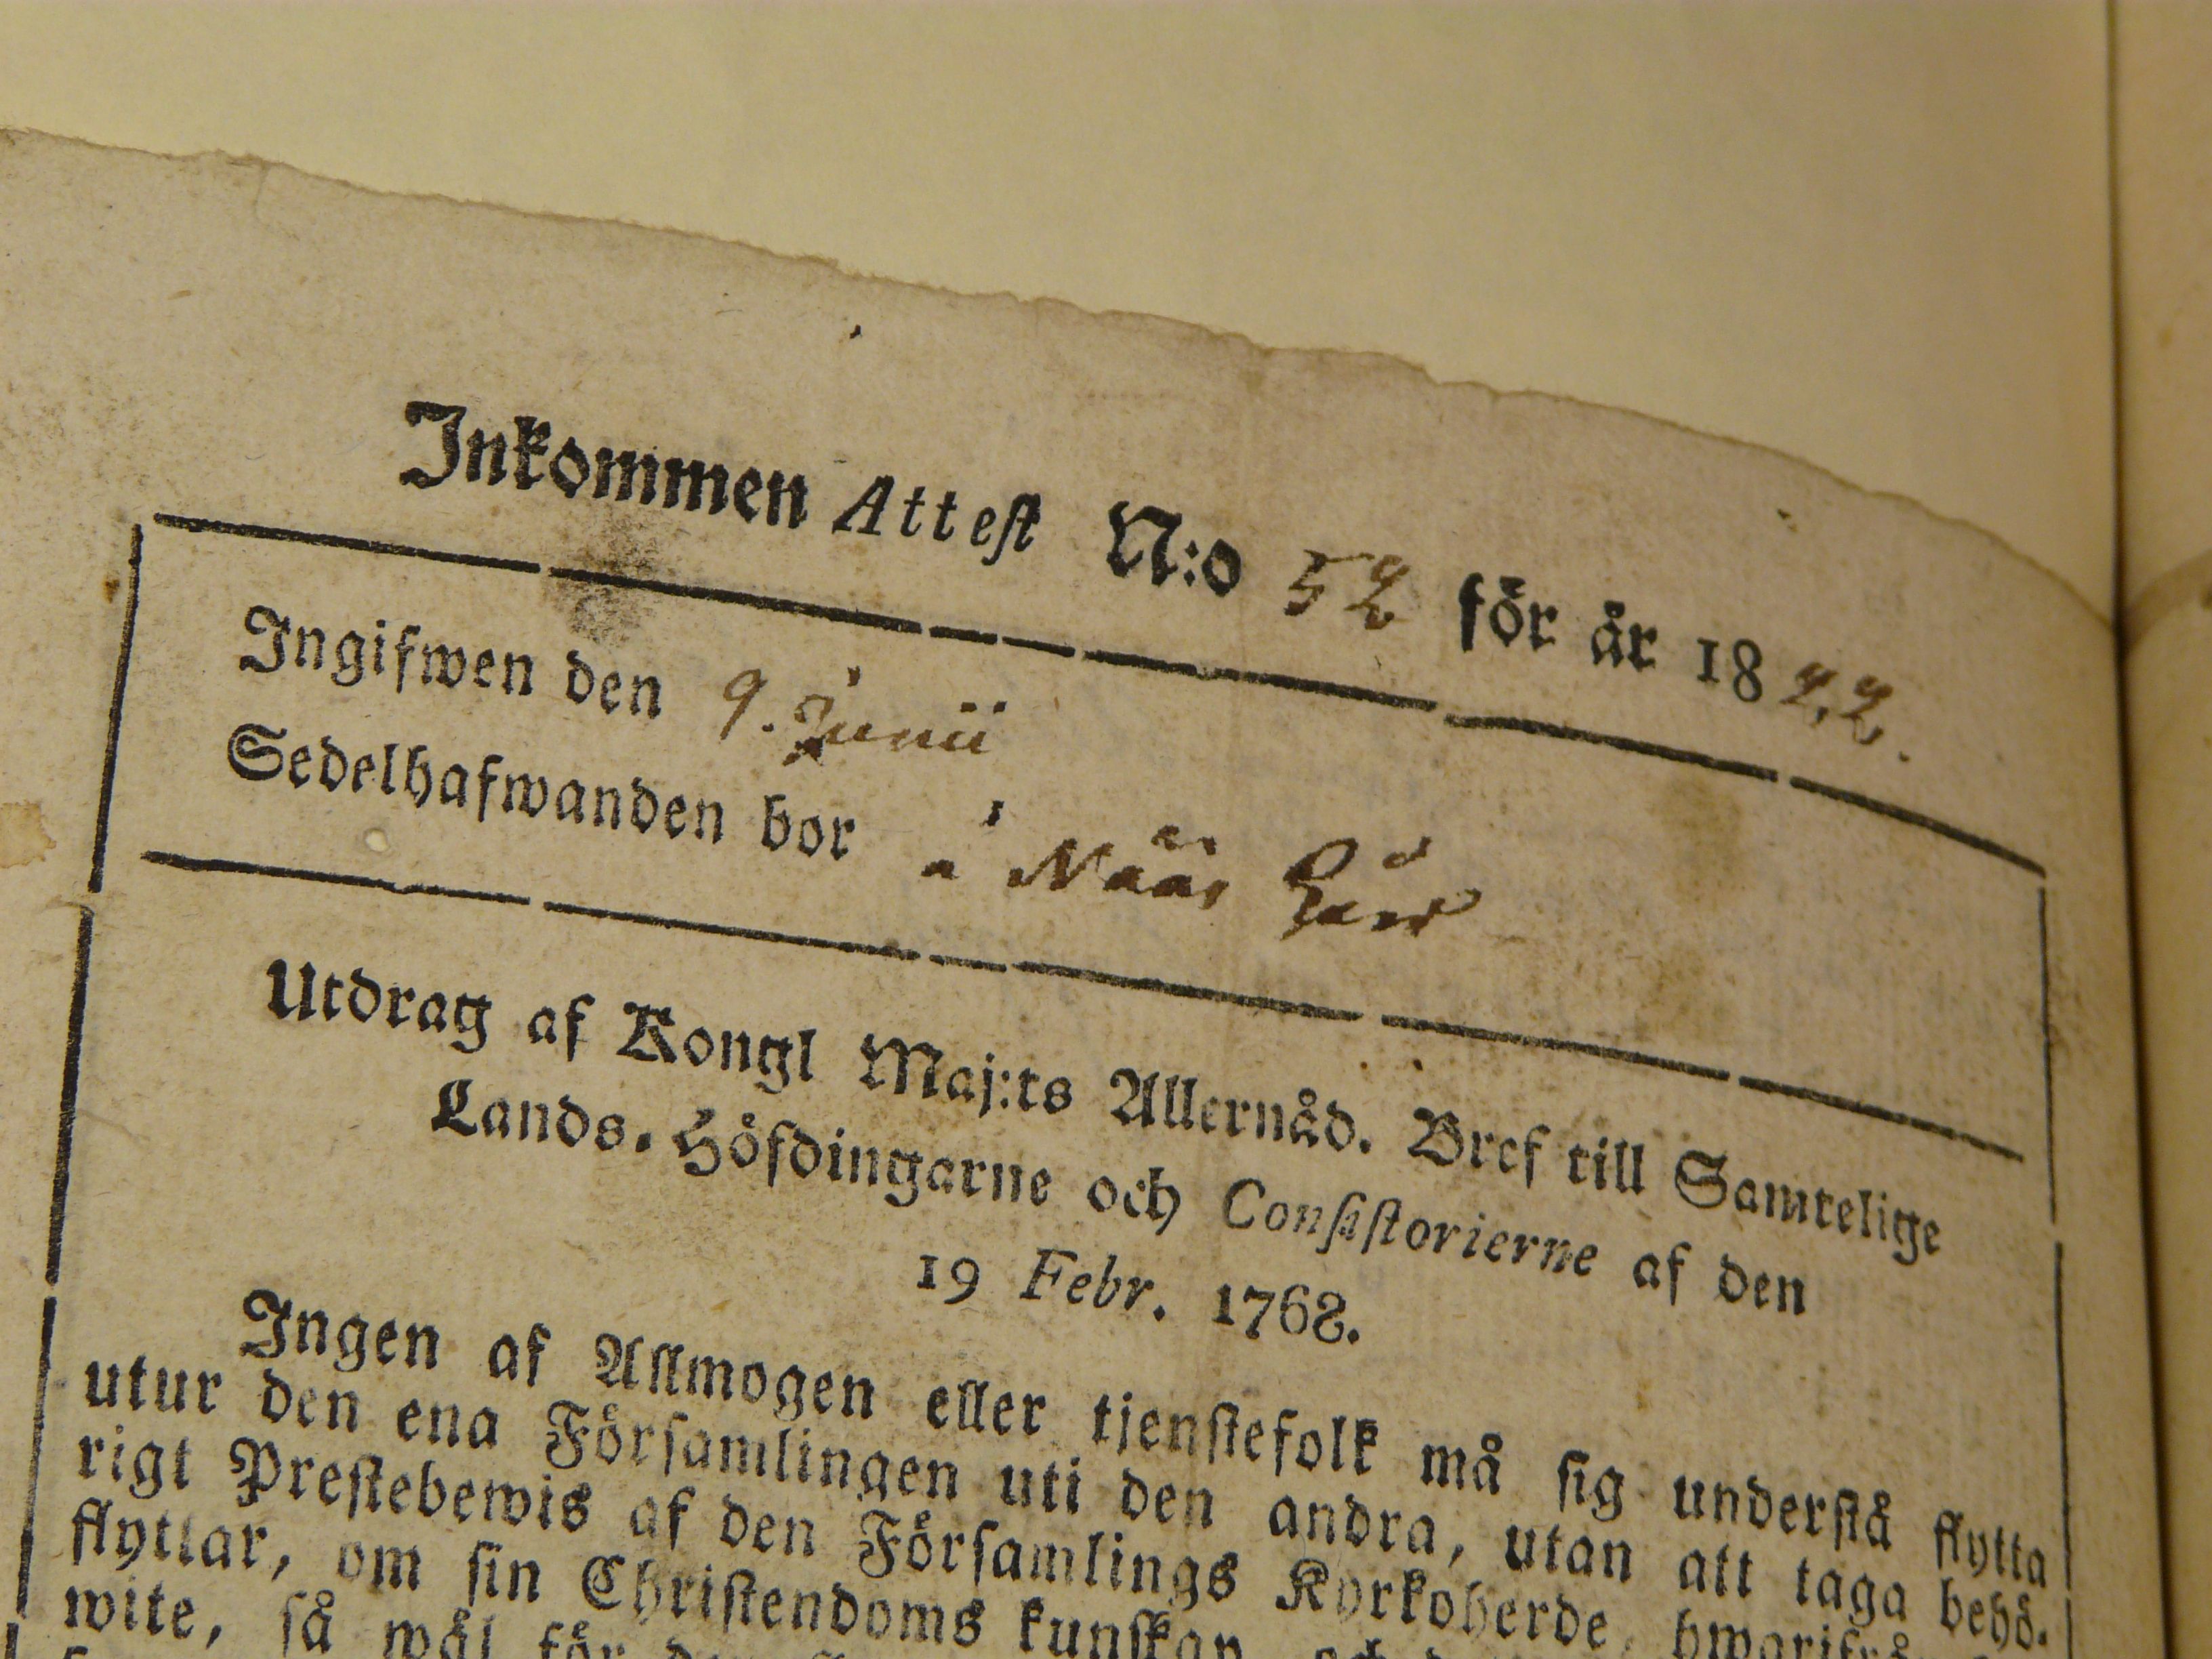 Inkommen Attest N:o 52 för år 1822.
Ingifwen den 9. Junii
Sedelhafwanden bor å Nääs
Utdrag af Kongl Maj:ts Allernåd. Bref till Samtelige
Lands-Höfdingarne och Consistorierne af den
19 Febr. 1768.
Ingen af Allmogen eller tjenstefolk må sig understå flytta
utur den ena Församlingen uti den andra, utan att taga behö-
rigt Prestebewis af den Församlings Kyrkoherde, hwarifrån
flyttar, om sin Christendoms kunskap och
wite, så wäl för